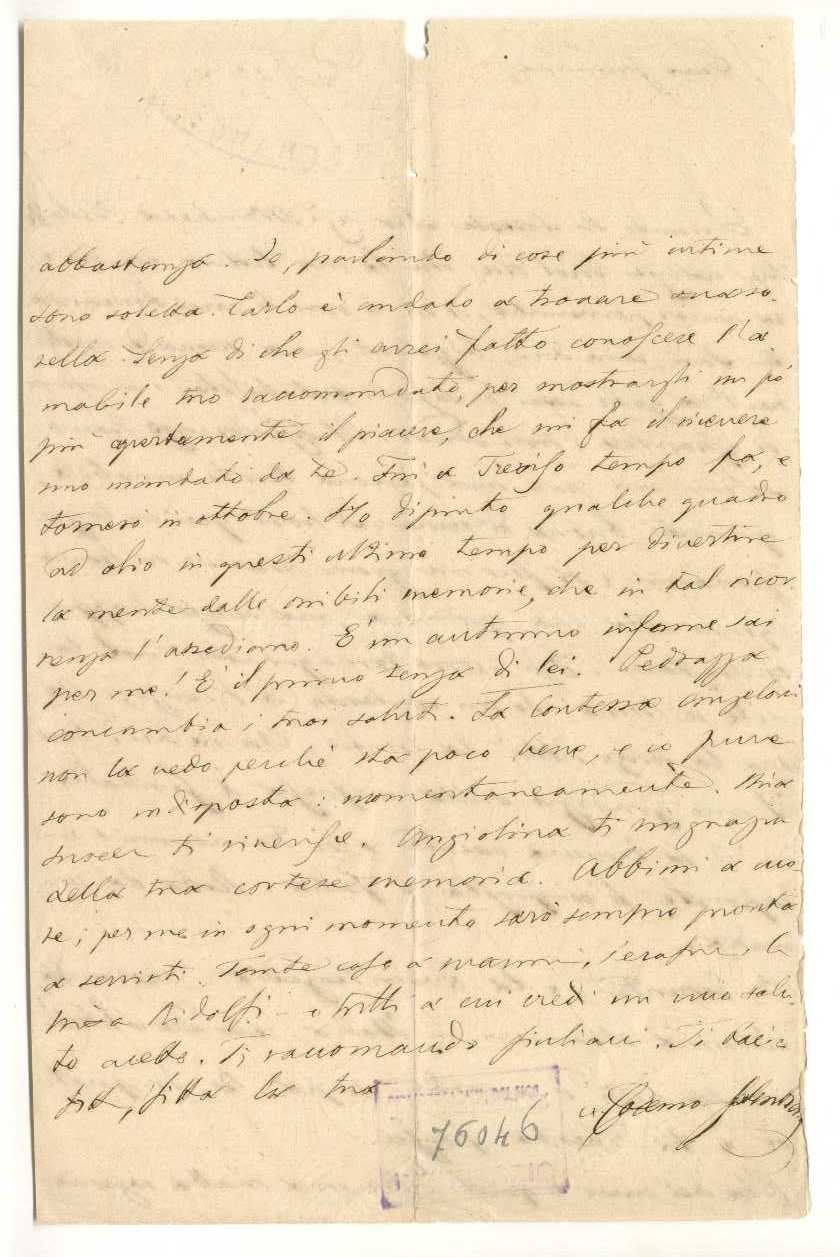 abbastanza. Io, parlando di cose più intime
sono soletta. Carlo è andato a trovare sua so-
rella. Senza di che gli avrei fatto conoscere l'a-
mabile tuo raccomandato, per mostrargli un pò
più apertamente il piacere, che mi fa il ricevere
uno mandato da te. Fui a Treviso tempo fa, e
tornerò in ottobre. Ho dipinto qualche quadro
ad olio in questi ultimo tempo per divertire
la mente dalle orribili memorie, che in tal ricor-
renza l'assediano. È un autunno infame sai
per me! È il primo senza di lei. Pedrazza
concambia i tuoi saluti. La Contessa Angeloni
non la vedo perchè sta poco bene, e io pure
sono indisposta: momentaneamente. Mia
ti riverisce. Angiolina ti ringrazia
della tua cortese memoria. Abbimi a cuo-
re; per me in ogni momento sarò sempre pronta
a servirti. Tante cose a mamma, Serafini, la
Ridolfi e tutti a cui credi un mio salu-
to accetto. Ti raccomando Giuliani. Ti bacia
fitta, fitta la tua
76094